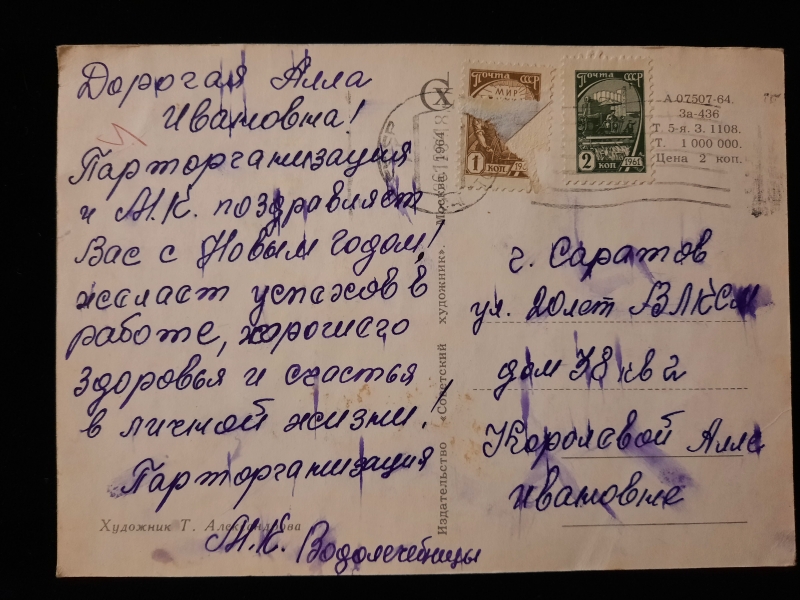 Дорогая Алла
Ивановна!
Парторганизация
и М.К. поздравляет
Вас с Новым годом!
желает успехов в
работе, хорошего
здоровья и счастья
в личной жизни!
Парторганизация
М.К. Водолечебницы
Художник Т. Александрова
Издательство «Советский художник». Москва. 1964
ПОЧТА СССР
МИР
1 КОП
ПОЧТА СССР
2 КОП 1961
А 07507-64.
За-436
Т. 5-я. З. 1108.
Т. 1 000 000.
Цена 2 коп.
г. Саратов
ул. 20 лет ВЛКСМ
дом 38 кв 2
Королевой Алле
Ивановне